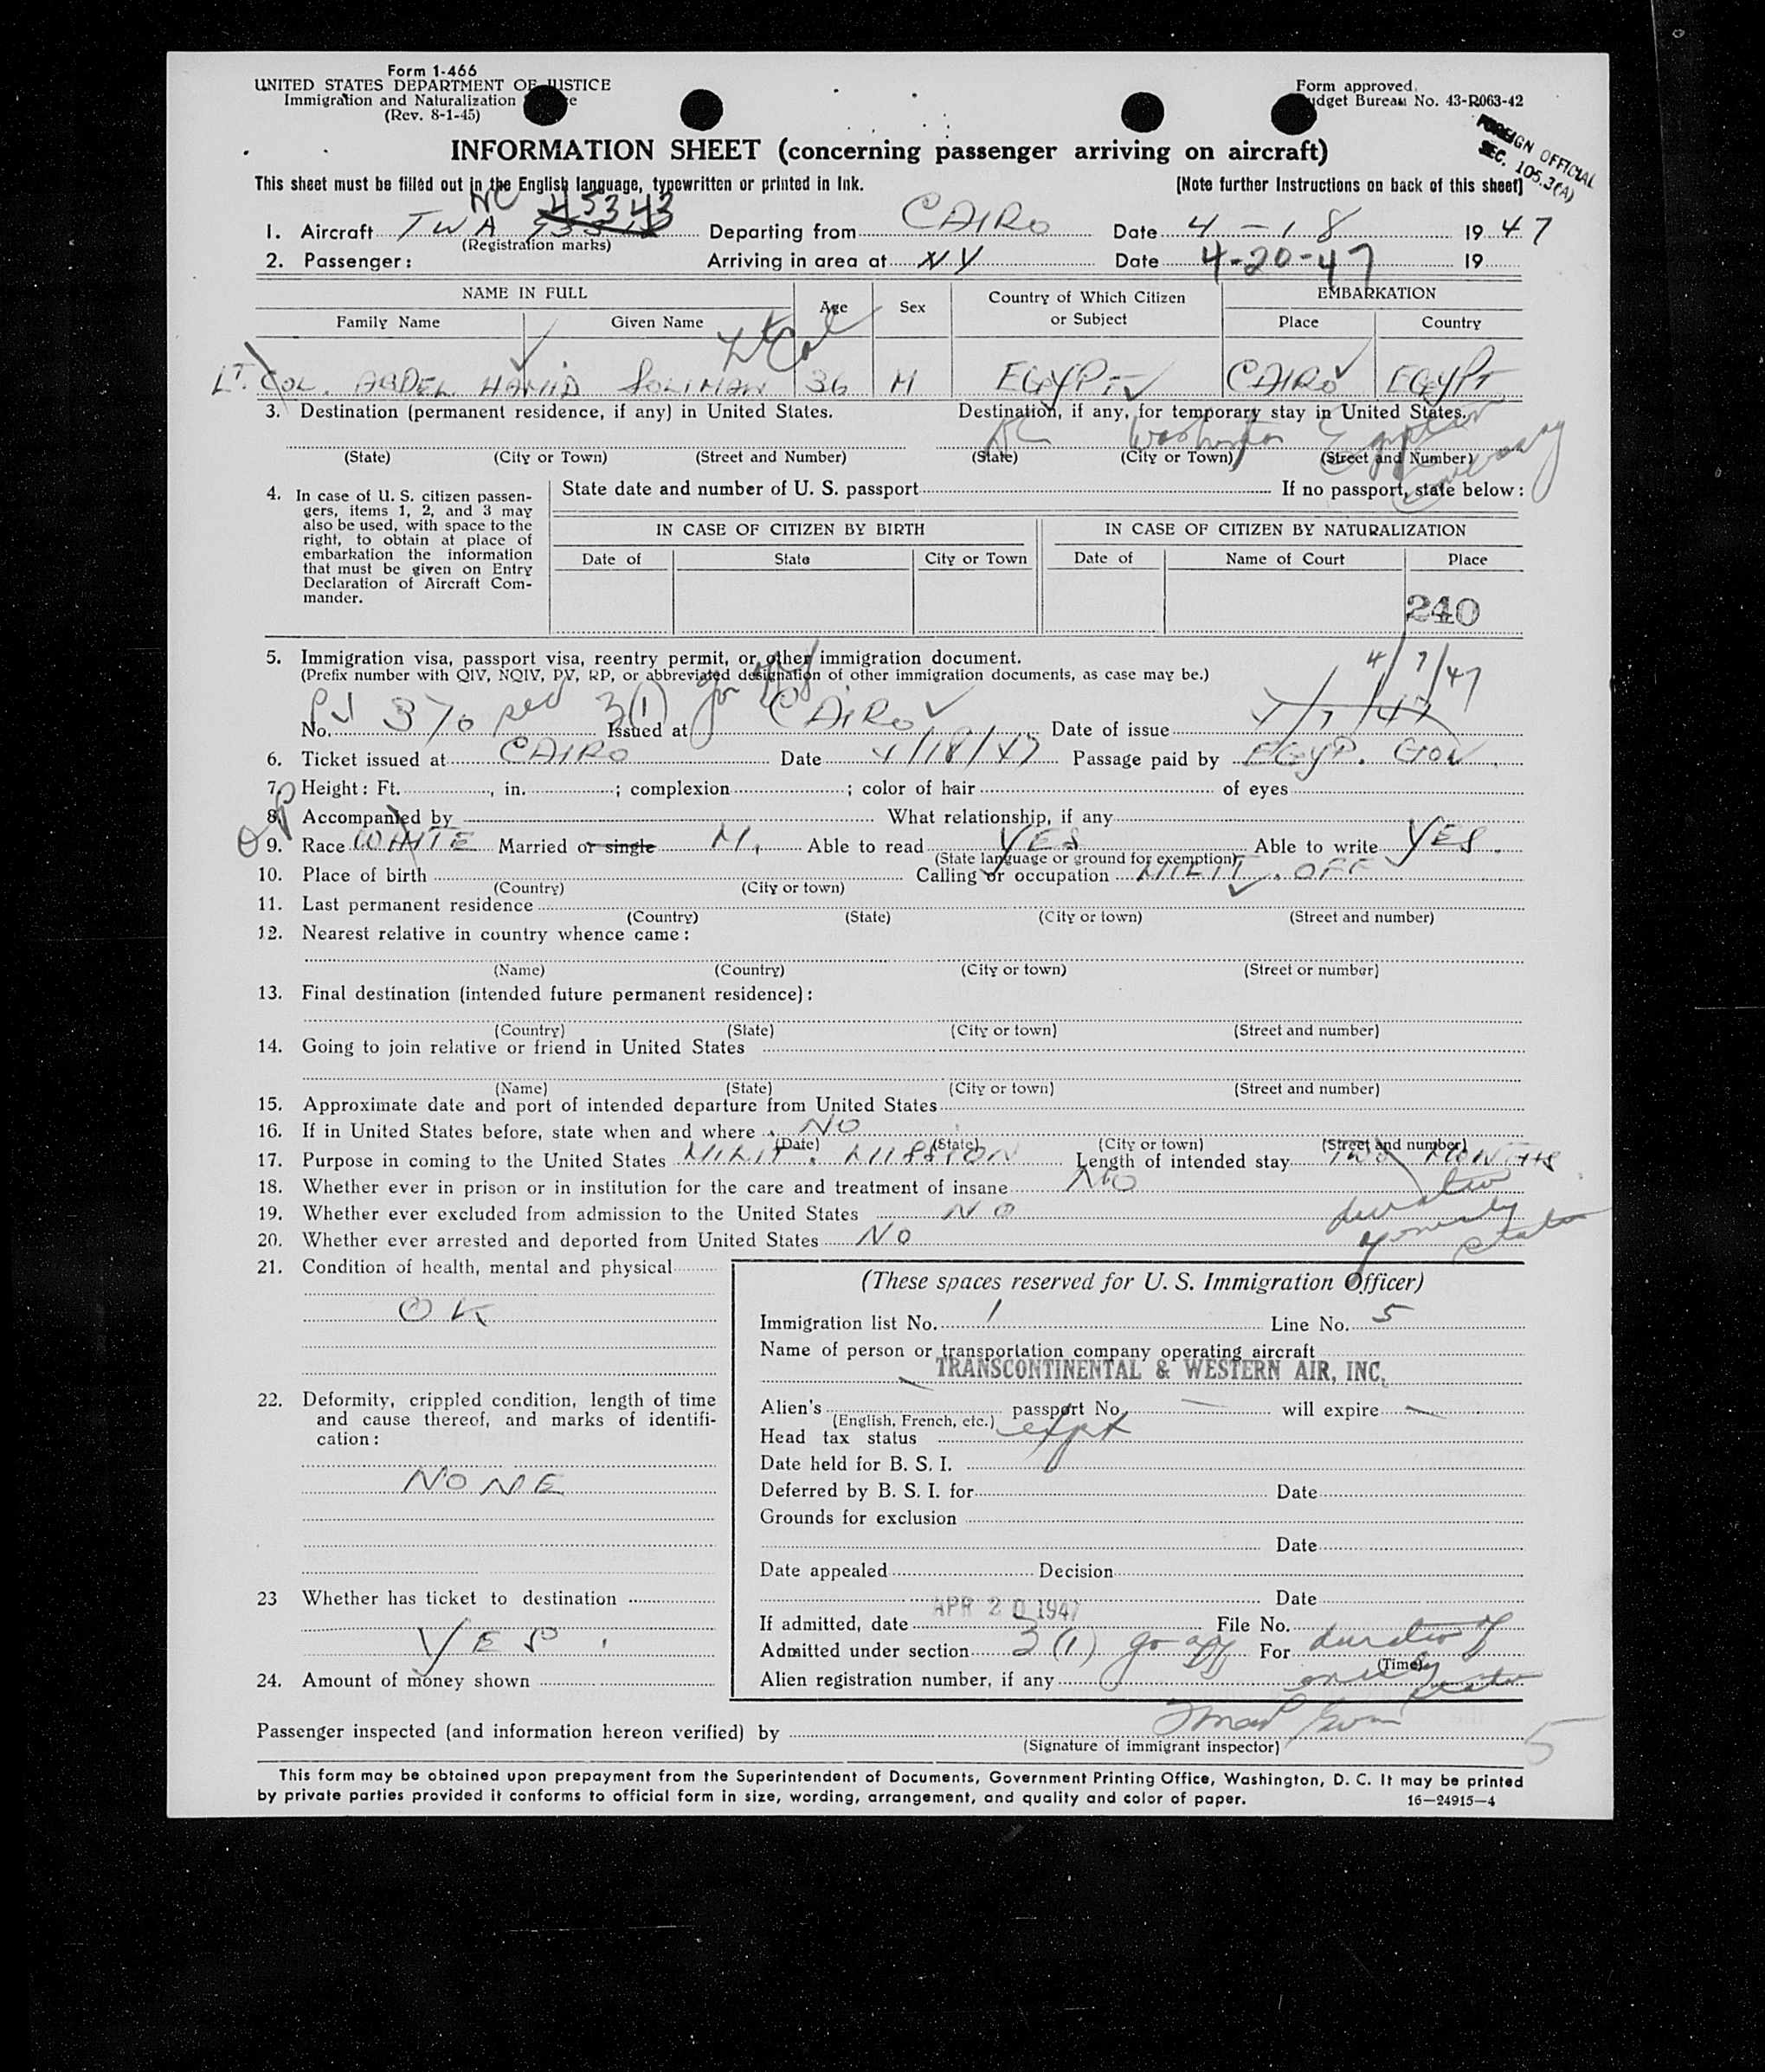 Form 1-466
UNITED STATES DEPARTMENT OF JUSTICE
Immigration and Naturalization
(Rev. 8-1-45)
Form approved.
Budget Bureau No. 43-R063-42
FOREIGN OFFICIAL
SEC. 105.3(A)
INFORMATION SHEET (concerning passenger arriving on aircraft)
This sheet must be filled out in the English language, typewritten or printed in ink.
[Note further Instructions on back of this sheet]
NC 45343
1. Aircraft TWA Departing from CAIRO Date 4-18 1947
(Registration marks)
2. Passenger: Arriving in area at NY Date 4-20-47 19
NAME IN FULL Age Sex Country of Which Citizen or Subject EMBARKATION
Family Name Given Name Place Country
Lt Col
LT. COL. ABDEL HAMID SOLIMAN 36 M EGYPT CAIRO EGYPT
3. Destination (permanent residence, if any) in United States. Destination, if any, for temporary stay in United States.
DC Washington Egyptian Embassy
(State) (City or Town) (Street and Number) (State) (City or Town) (Street and Number)
4. In case of U. S. citizen passen-
gers, items 1, 2, and 3 may
also be used, with space to the
right, to obtain at place of
embarkation the information
that must be given on Entry
Declaration of Aircraft Com-
mander.
State date and number of U. S. passport If no passport, state below:
IN CASE OF CITIZEN BY BIRTH IN CASE OF CITIZEN BY NATURALIZATION
Date of State City or Town Date of Name of Court Place
240
5. Immigration visa, passport visa, reentry permit, or other immigration document.
(Prefix number with QIV, NQIV, PV, RP, or abbreviated designation of other immigration documents, as case may be.)
4/7/47
No. PV 370 sec 3(1) Issued at CAIRO Date of issue 4/7/47
6. Ticket issued at CAIRO Date 4/18/47 Passage paid by EGYP. GOV.
7. Height: Ft. , in. ; complexion ; color of hair of eyes
8. Accompanied by What relationship, if any
9. Race WHITE Married or single M. Able to read YES Able to write YES.
(State language or ground for exemption)
10. Place of birth Calling or occupation MILIT. OFF
(Country) (City or town)
11. Last permanent residence
(Country) (State) (City or town) (Street and number)
12. Nearest relative in country whence came:
(Name) (Country) (City or town) (Street or number)
13. Final destination (intended future permanent residence):
(Country) (State) (City or town) (Street and number)
14. Going to join relative or friend in United States
(Name) (State) (City or town) (Street and number)
15. Approximate date and port of intended departure from United States
16. If in United States before, state when and where NO
(Date) (State) (City or town) (Street and number)
17. Purpose in coming to the United States MILIT. MISSION Length of intended stay TWO MONTHS
18. Whether ever in prison or in institution for the care and treatment of insane NO
duration
19. Whether ever excluded from admission to the United States NO
20. Whether ever arrested and deported from United States NO
21. Condition of health, mental and physical
OK
22. Deformity, crippled condition, length of time
and cause thereof, and marks of identifi-
cation:
NONE
23 Whether has ticket to destination
YES.
24. Amount of money shown
(These spaces reserved for U. S. Immigration Officer)
Immigration list No. 1 Line No. 5
Name of person or transportation company operating aircraft
TRANSCONTINENTAL & WESTERN AIR, INC.
Alien's passport No. — will expire —
(English, French, etc.)
Head tax status expt
Date held for B. S. I.
Deferred by B. S. I. for Date
Grounds for exclusion
Date
Date appealed Decision
Date
If admitted, date APR 20 1947 File No.
Admitted under section 3(1) go off For duration of
(Time)
Alien registration number, if any
Passenger inspected (and information hereon verified) by
(Signature of immigrant inspector)
5
This form may be obtained upon prepayment from the Superintendent of Documents, Government Printing Office, Washington, D. C. It may be printed
by private parties provided it conforms to official form in size, wording, arrangement, and quality and color of paper. 16—24915—4